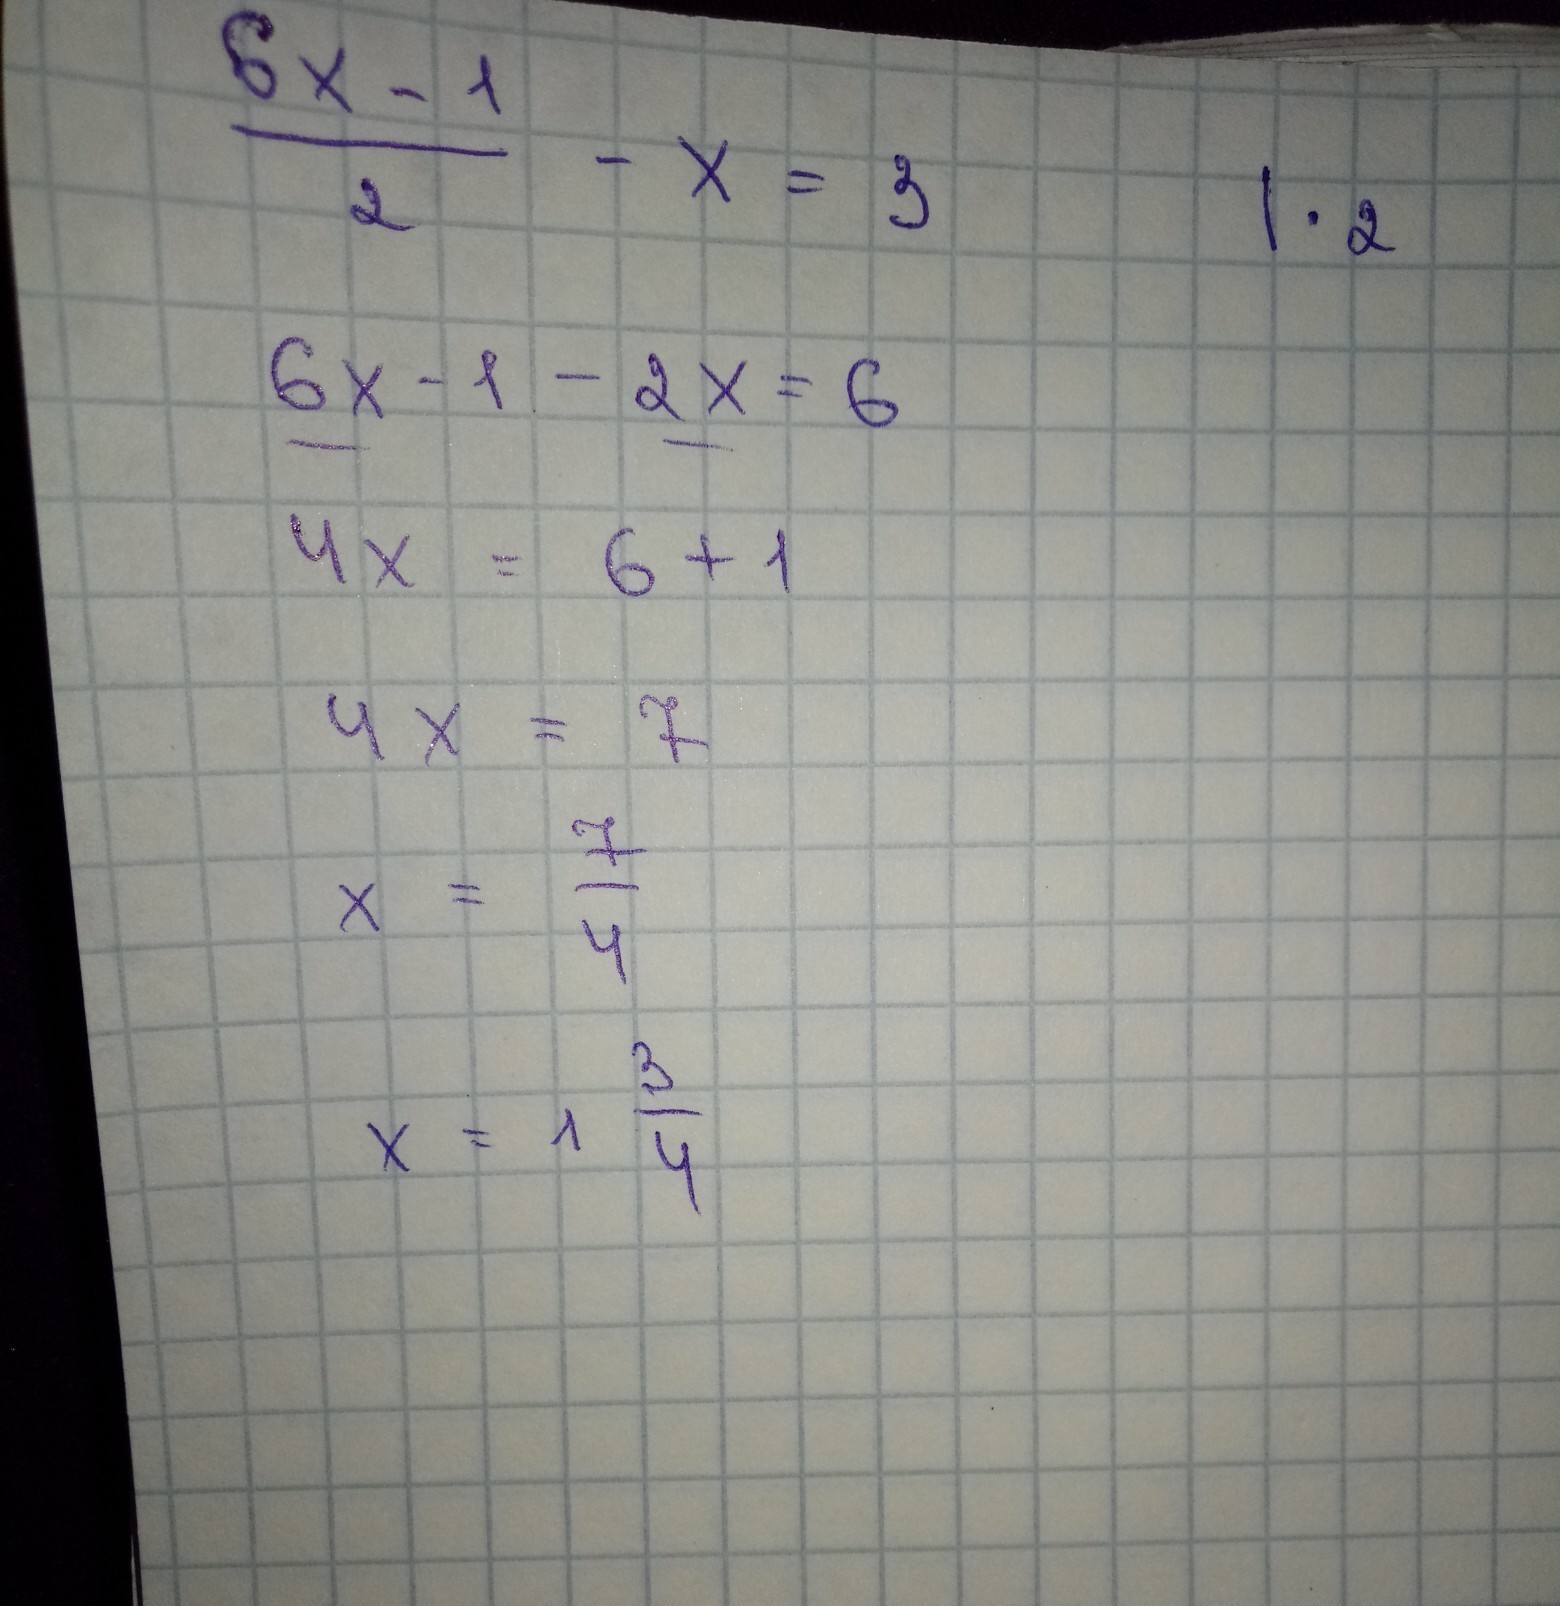 (6x - 1)/2 - x = 3 | · 2
6x - 1 - 2x = 6
4x = 6 + 1
4x = 7
x = 7/4
x = 1 3/4